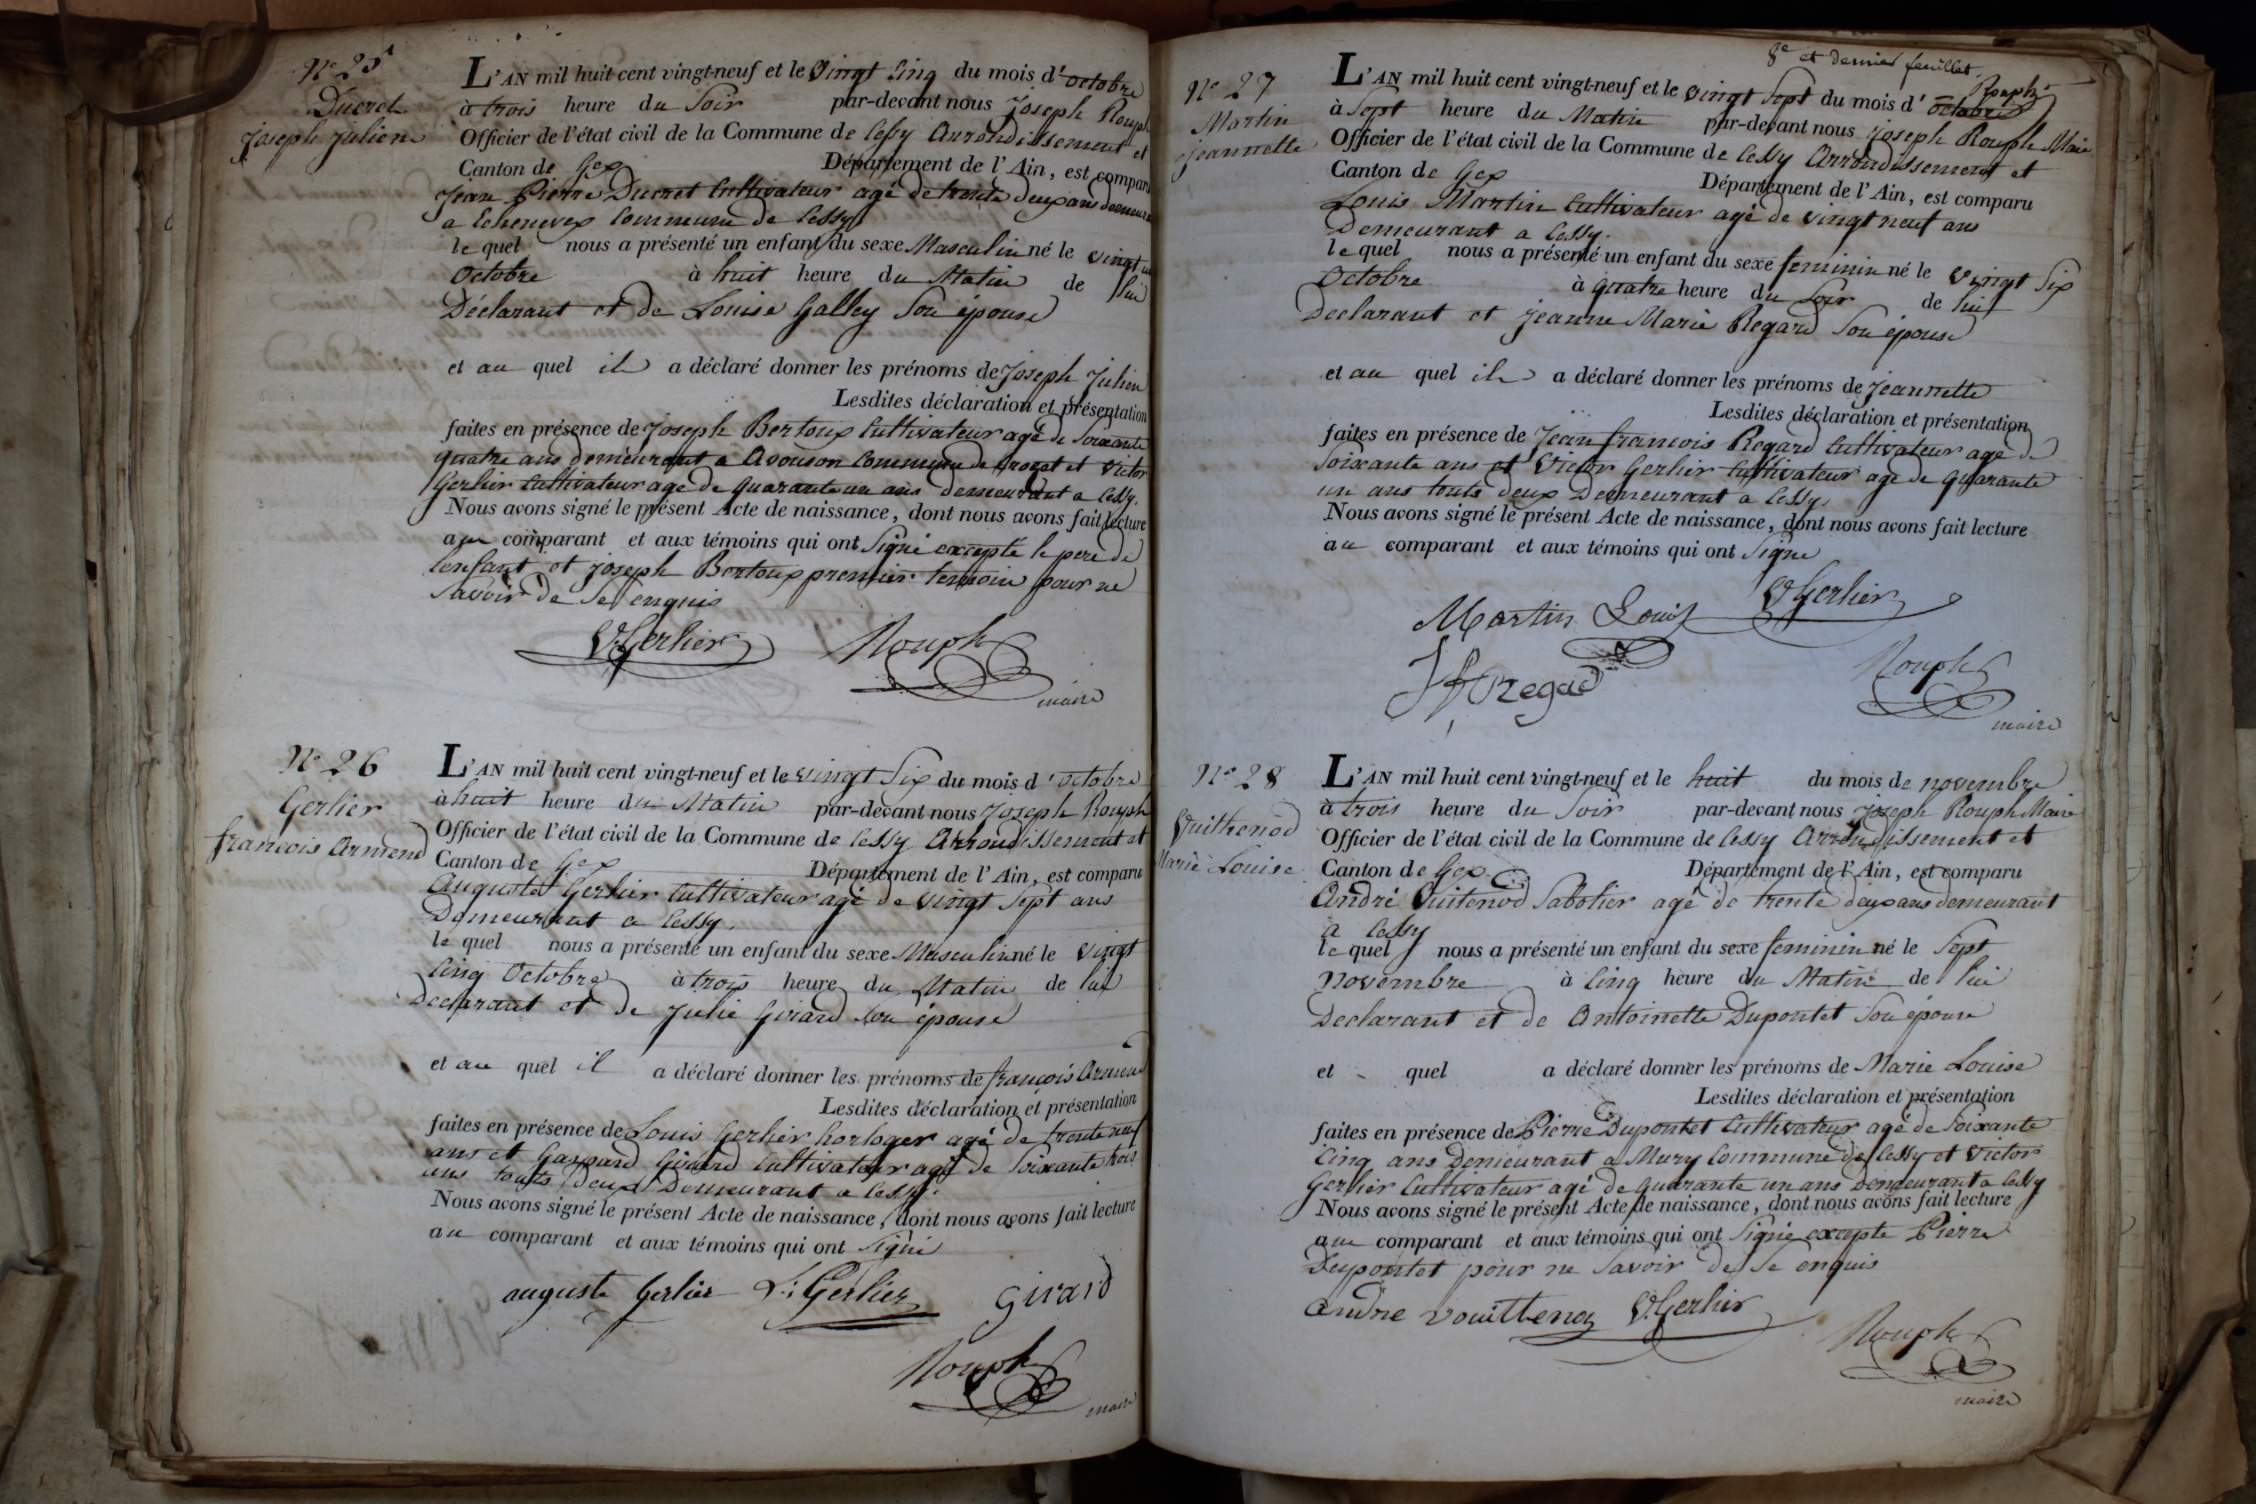 N.° 25
Ducret
Joseph Julien
L'AN mil huit cent vingt-neuf et le vingt cinq du mois d'octobre
à trois heure du Soir par-devant nous Joseph Rouph
Officier de l'état civil de la Commune de Cessy Arrondissement et
Canton de Gex Département de l'Ain, est comparu
Jean Pierre Ducret Cultivateur agé de trente deux ans demeurant
a Echenevex Commune de Cessy
le quel nous a présenté un enfant du sexe Masculin né le vingt
Octobre à huit heure du Matin de lui
Déclarant et de Louise Galley Son épouse
et au quel il a déclaré donner les prénoms de Joseph Julien
Lesdites déclaration et présentation
faites en présence de Joseph Bertoux Cultivateur agé de Soixante
quatre ans demeurant a Avouson Commune de Crozet et Victor
Gerlier Cultivateur agé de quarante un ans demeurant a Cessy.
Nous avons signé le présent Acte de naissance, dont nous avons fait lecture
au comparant et aux témoins qui ont Signé excepté le pere de
l'enfant et joseph Bertoux premier temoin pour ne
Savoir de Se enquis
V. Gerlier Rouph
maire
N.° 26
Gerlier
francois Armend
L'AN mil huit cent vingt-neuf et le vingt Six du mois d'octobre
à huit heure du Matin par-devant nous Joseph Rouph
Officier de l'état civil de la Commune de Cessy Arrondissement et
Canton de Gex Département de l'Ain, est comparu
Auguste Gerlier Cultivateur agé de vingt Sept ans
Demeurant a Cessy.
le quel nous a présenté un enfant du sexe Masculin né le vingt
Cinq Octobre à trois heure du Matin de lui
Declarant et de Julie Girard Son épouse
et au quel il a déclaré donner les prénoms de françois Armend
Lesdites déclaration et présentation
faites en présence de Louis Gerlier horloger agé de trente neuf
ans et Gaspard Girard Cultivateur agé de Soixante trois
ans touts Deux Demeurant a Cessy.
Nous avons signé le présent Acte de naissance, dont nous avons fait lecture
au comparant et aux témoins qui ont Signé
auguste Gerlier L: Gerlier Girard
Rouph
maire
8e et dernier feuillet.
Rouph
N.° 27
Martin
Jeannette
L'AN mil huit cent vingt-neuf et le vingt Sept du mois d'octobre
à Sept heure du Matin par-devant nous joseph Rouph Maire
Officier de l'état civil de la Commune de Cessy Arrondissement et
Canton de Gex Département de l'Ain, est comparu
Louis Martin Cultivateur agé de vingt neuf ans
Demeurant a Cessy.
le quel nous a présenté un enfant du sexe feminin né le vingt Six
Octobre à quatre heure du Soir de lui
Declarant et jeanne Marie Regard Son épouse
et au quel il a déclaré donner les prénoms de Jeannette
Lesdites déclaration et présentation
faites en présence de Jean francois Regard Cultivateur agé de
Soixante ans et Victor Gerlier Cultivateur agé de quarante
un ans touts deux Demeurant a Cessy.
Nous avons signé le présent Acte de naissance, dont nous avons fait lecture
au comparant et aux témoins qui ont Signé
Martin Louis V. Gerlier
Rouph
maire
N.° 28
Vuithenod
Marie Louise
L'AN mil huit cent vingt-neuf et le huit du mois de novembre
à trois heure du Soir par-devant nous joseph Rouph Maire
Officier de l'état civil de la Commune de Cessy Arrondissement et
Canton de Gex. Département de l'Ain, est comparu
André Vuitenod Sabotier agé de trente deux ans demeurant
a Cessy
le quel nous a présenté un enfant du sexe feminin né le Sept
Novembre à Cinq heure du Matin de lui
Declarant et de Antoinette Dupontet Son épouse
et quel a déclaré donner les prénoms de Marie Louise
Lesdites déclaration et présentation
faites en présence de Pierre Dupontet Cultivateur agé de Soixante
Cinq ans Demeurant a Mury Commune de Cessy et Victor
Gerlier Cultivateur agé de quarante un ans Demeurant a Cessy
Nous avons signé le présent Acte de naissance, dont nous avons fait lecture
au comparant et aux témoins qui ont Signé excepte Pierre
Dupontet pour ne Savoir de Se enquis
andre vouittenoz V. Gerlier
Rouph
maire